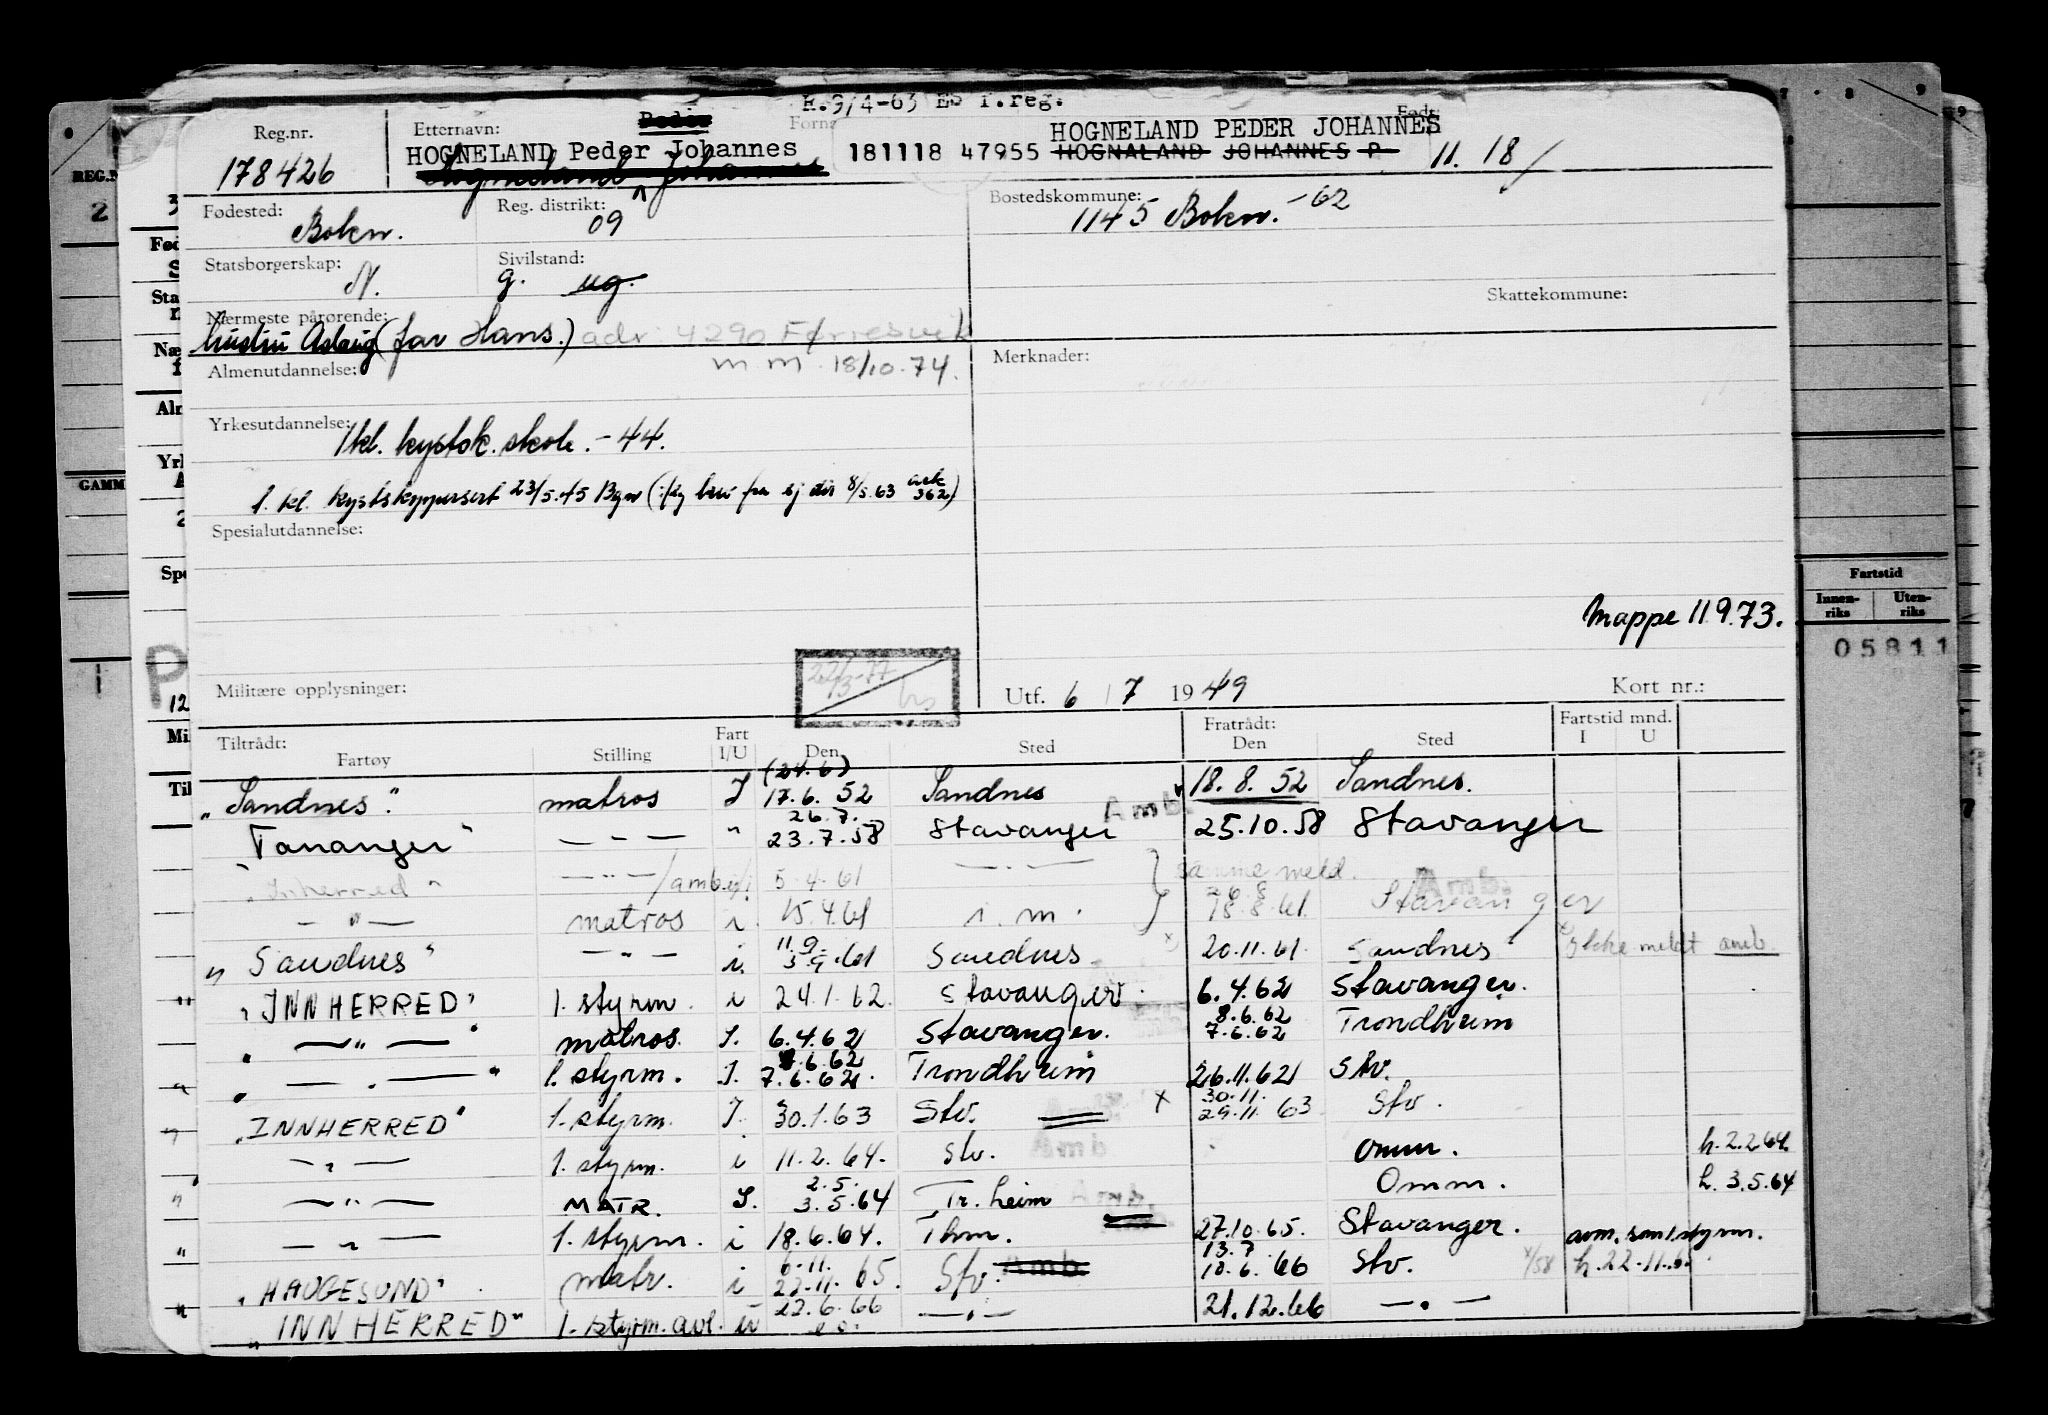 R.9/4-63 ES T.reg.
Reg.nr. Etternavn: Peder Forna Født:
HOGNELAND PEDER JOHANNES
HOGNELAND Peder Johannes 181118 47955 HOGNALAND JOHANNES P 11. 18/
178426 Hogneland Johannes
Fødested: Bokn. Reg. distrikt: 09 Bostedskommune: 1145 Bokn. -62
Statsborgerskap: N. Sivilstand: g. ug.
Skattekommune:
Nærmeste pårørende:
hustru Aslaug (far Hans.) adr 4290 Førresvik
m m. 18/10-74.
Almenutdannelse: Merknader:
Yrkesutdannelse: 1 kl. kystsk. skole. -44.
1. kl. kystskippersert 23/5.45 Bgn (ifg brev fra sj dir 8/5.63 ark 362)
Spesialutdannelse:
Mappe 11.9.73.
Militære opplysninger: 22/3-77 Utf. 6 / 7 1949 Kort nr.:
Tiltrådt: Fratrådt: Fartstid mnd.
Fartøy Stilling Fart I/U Den Sted Den Sted I U
(24.6)
"Sandnes" matros I 17.6.52 Sandnes 18.8.52 Sandnes.
26.7. Amb.
Tananger" — " — " 23.7.58 Stavanger 25.10.58 Stavanger
"Inherred" — " — /amb. 5.4.61 — " — } samme meld. Amb.
— " — matros i. 15.4.61 i. m. } 18.8.61. Stavanger
11.9.
"Sandnes" — " — i. 3.9.61 Sandnes 20.11.61. Sandnes Ikke meldt amb.
"INNHERRED" 1. styrm. i 24.1.62. Stavanger. 6.4.62 Stavanger.
8.6.62
" — " — " matros. I. 6.4.62 Stavanger. 7.6.62 Trondheim
8.6.62
" — " — " 1. styrm. I. 7.6.62. Trondheim 26.11.62 Stv.
30.11.
"INNHERRED" 1. styrm. I. 30.1.63 Stv. x 29.11.63 Stv.
— " — 1. styrm. i 11.2.64. Stv. Amb Omm. h. 2.2.64.
2.5.
— " — MATR. I. 3.5.64 Tr. heim Amb. Omm. h. 3.5.64
— " — 1. styrm. i 18.6.64. Thm. 27.10.65. Stavanger. avm. som 1. styrm.
6.11. 13.7
"HAUGESUND" matr. i 22.11.65. Stv. Amb. 10.6.66 Stv. h. 22-11.6
"INNHERRED" 1. styrm. avl. i 22.6.66 — " — 21.12.66 — " —
REG.N
GAMM
Fartstid
Innen-riks Uten-riks
05811